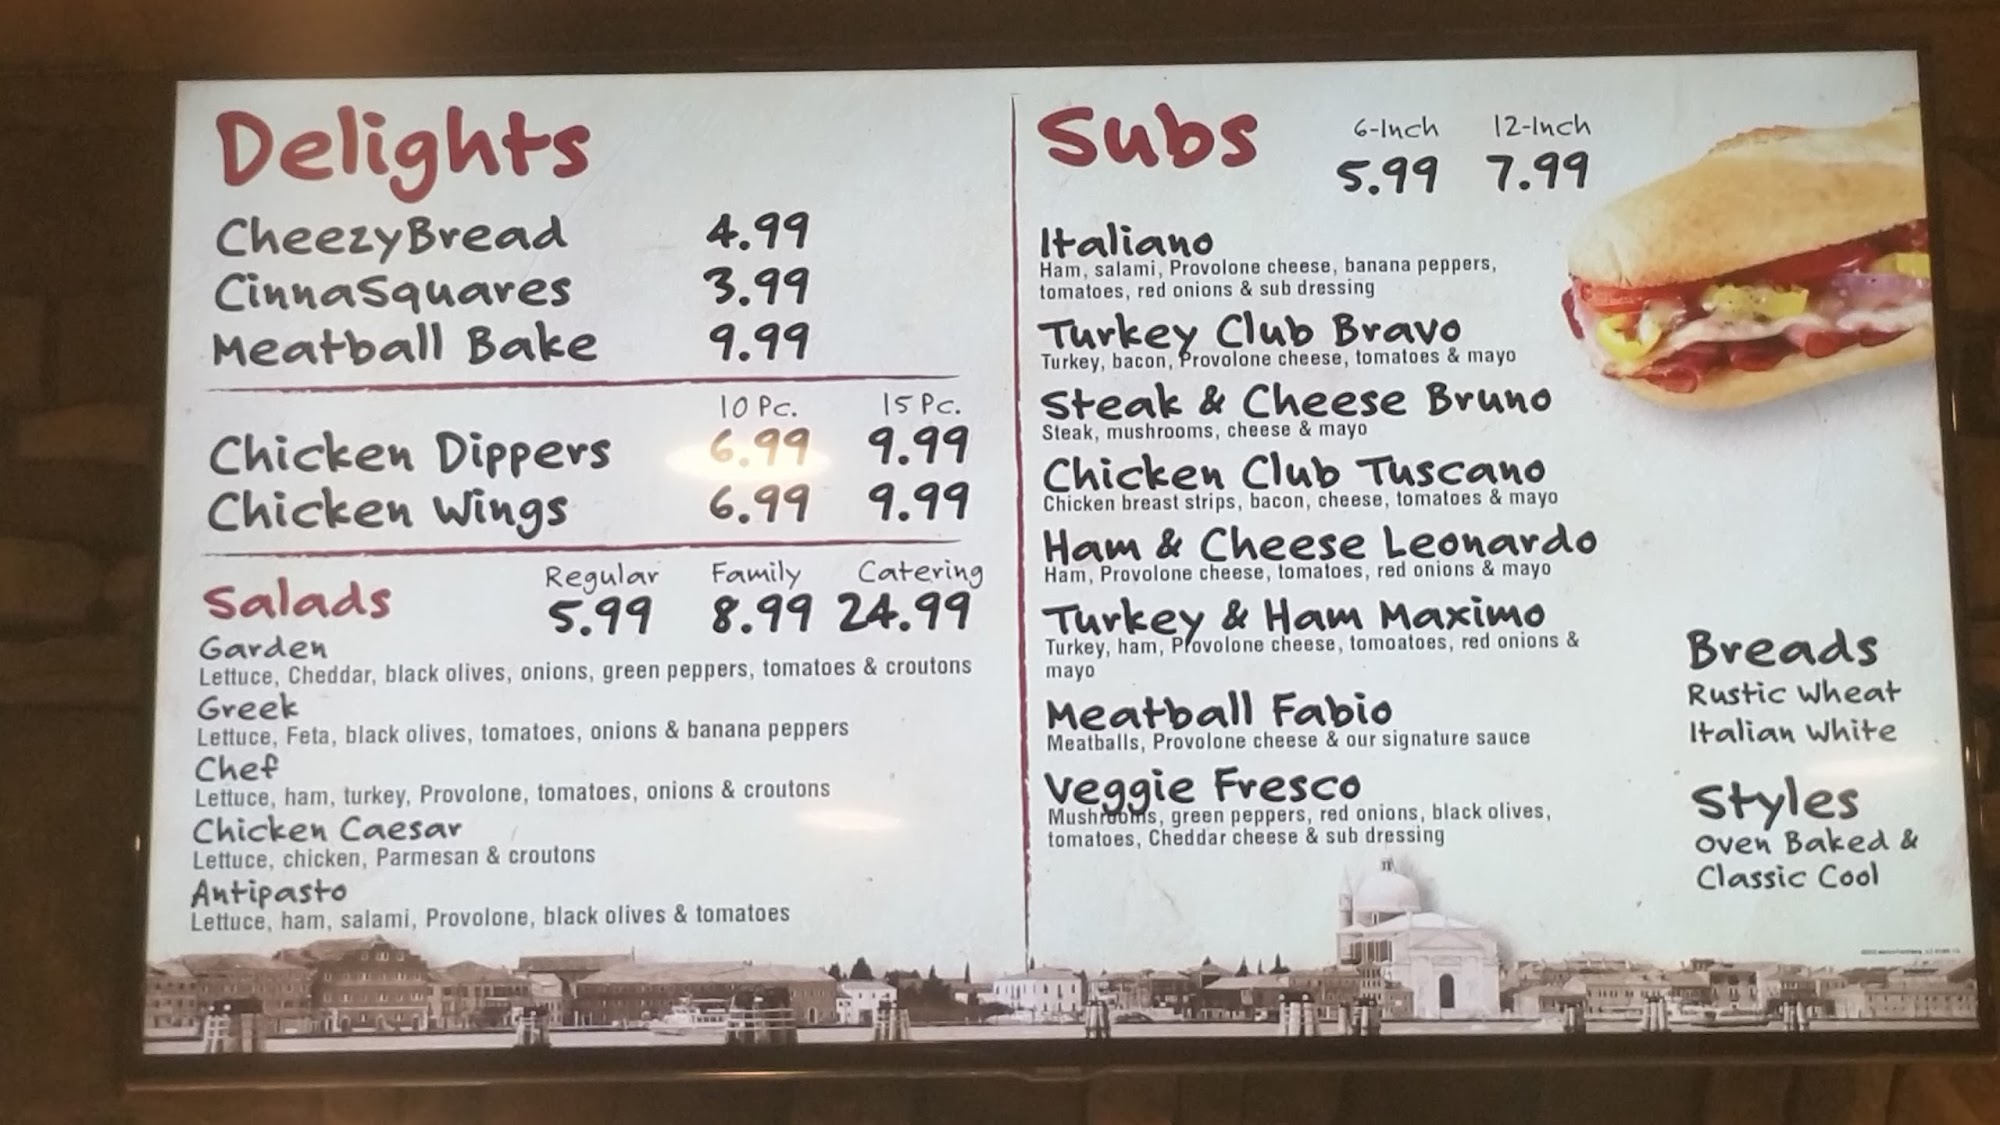 Delights
CheezyBread 4.99
CinnaSquares 3.99
Meatball Bake 9.99
10 Pc. 15 Pc.
Chicken Dippers 6.99 9.99
Chicken Wings 6.99 9.99
Regular Family Catering
Salads 5.99 8.99 24.99
Garden
Lettuce, Cheddar, black olives, onions, green peppers, tomatoes & croutons
Greek
Lettuce, Feta, black olives, tomatoes, onions & banana peppers
Chef
Lettuce, ham, turkey, Provolone, tomatoes, onions & croutons
Chicken Caesar
Lettuce, chicken, Parmesan & croutons
Antipasto
Lettuce, ham, salami, Provolone, black olives & tomatoes
6-Inch 12-Inch
Subs 5.99 7.99
Italiano
Ham, salami, Provolone cheese, banana peppers,
tomatoes, red onions & sub dressing
Turkey Club Bravo
Turkey, bacon, Provolone cheese, tomatoes & mayo
Steak & Cheese Bruno
Steak, mushrooms, cheese & mayo
Chicken Club Tuscano
Chicken breast strips, bacon, cheese, tomatoes & mayo
Ham & Cheese Leonardo
Ham, Provolone cheese, tomatoes, red onions & mayo
Turkey & Ham Maximo
Turkey, ham, Provolone cheese, tomoatoes, red onions &
mayo
Meatball Fabio
Meatballs, Provolone cheese & our signature sauce
Veggie Fresco
Mushrooms, green peppers, red onions, black olives,
tomatoes, Cheddar cheese & sub dressing
Breads
Rustic Wheat
Italian White
Styles
Oven Baked &
Classic Cool